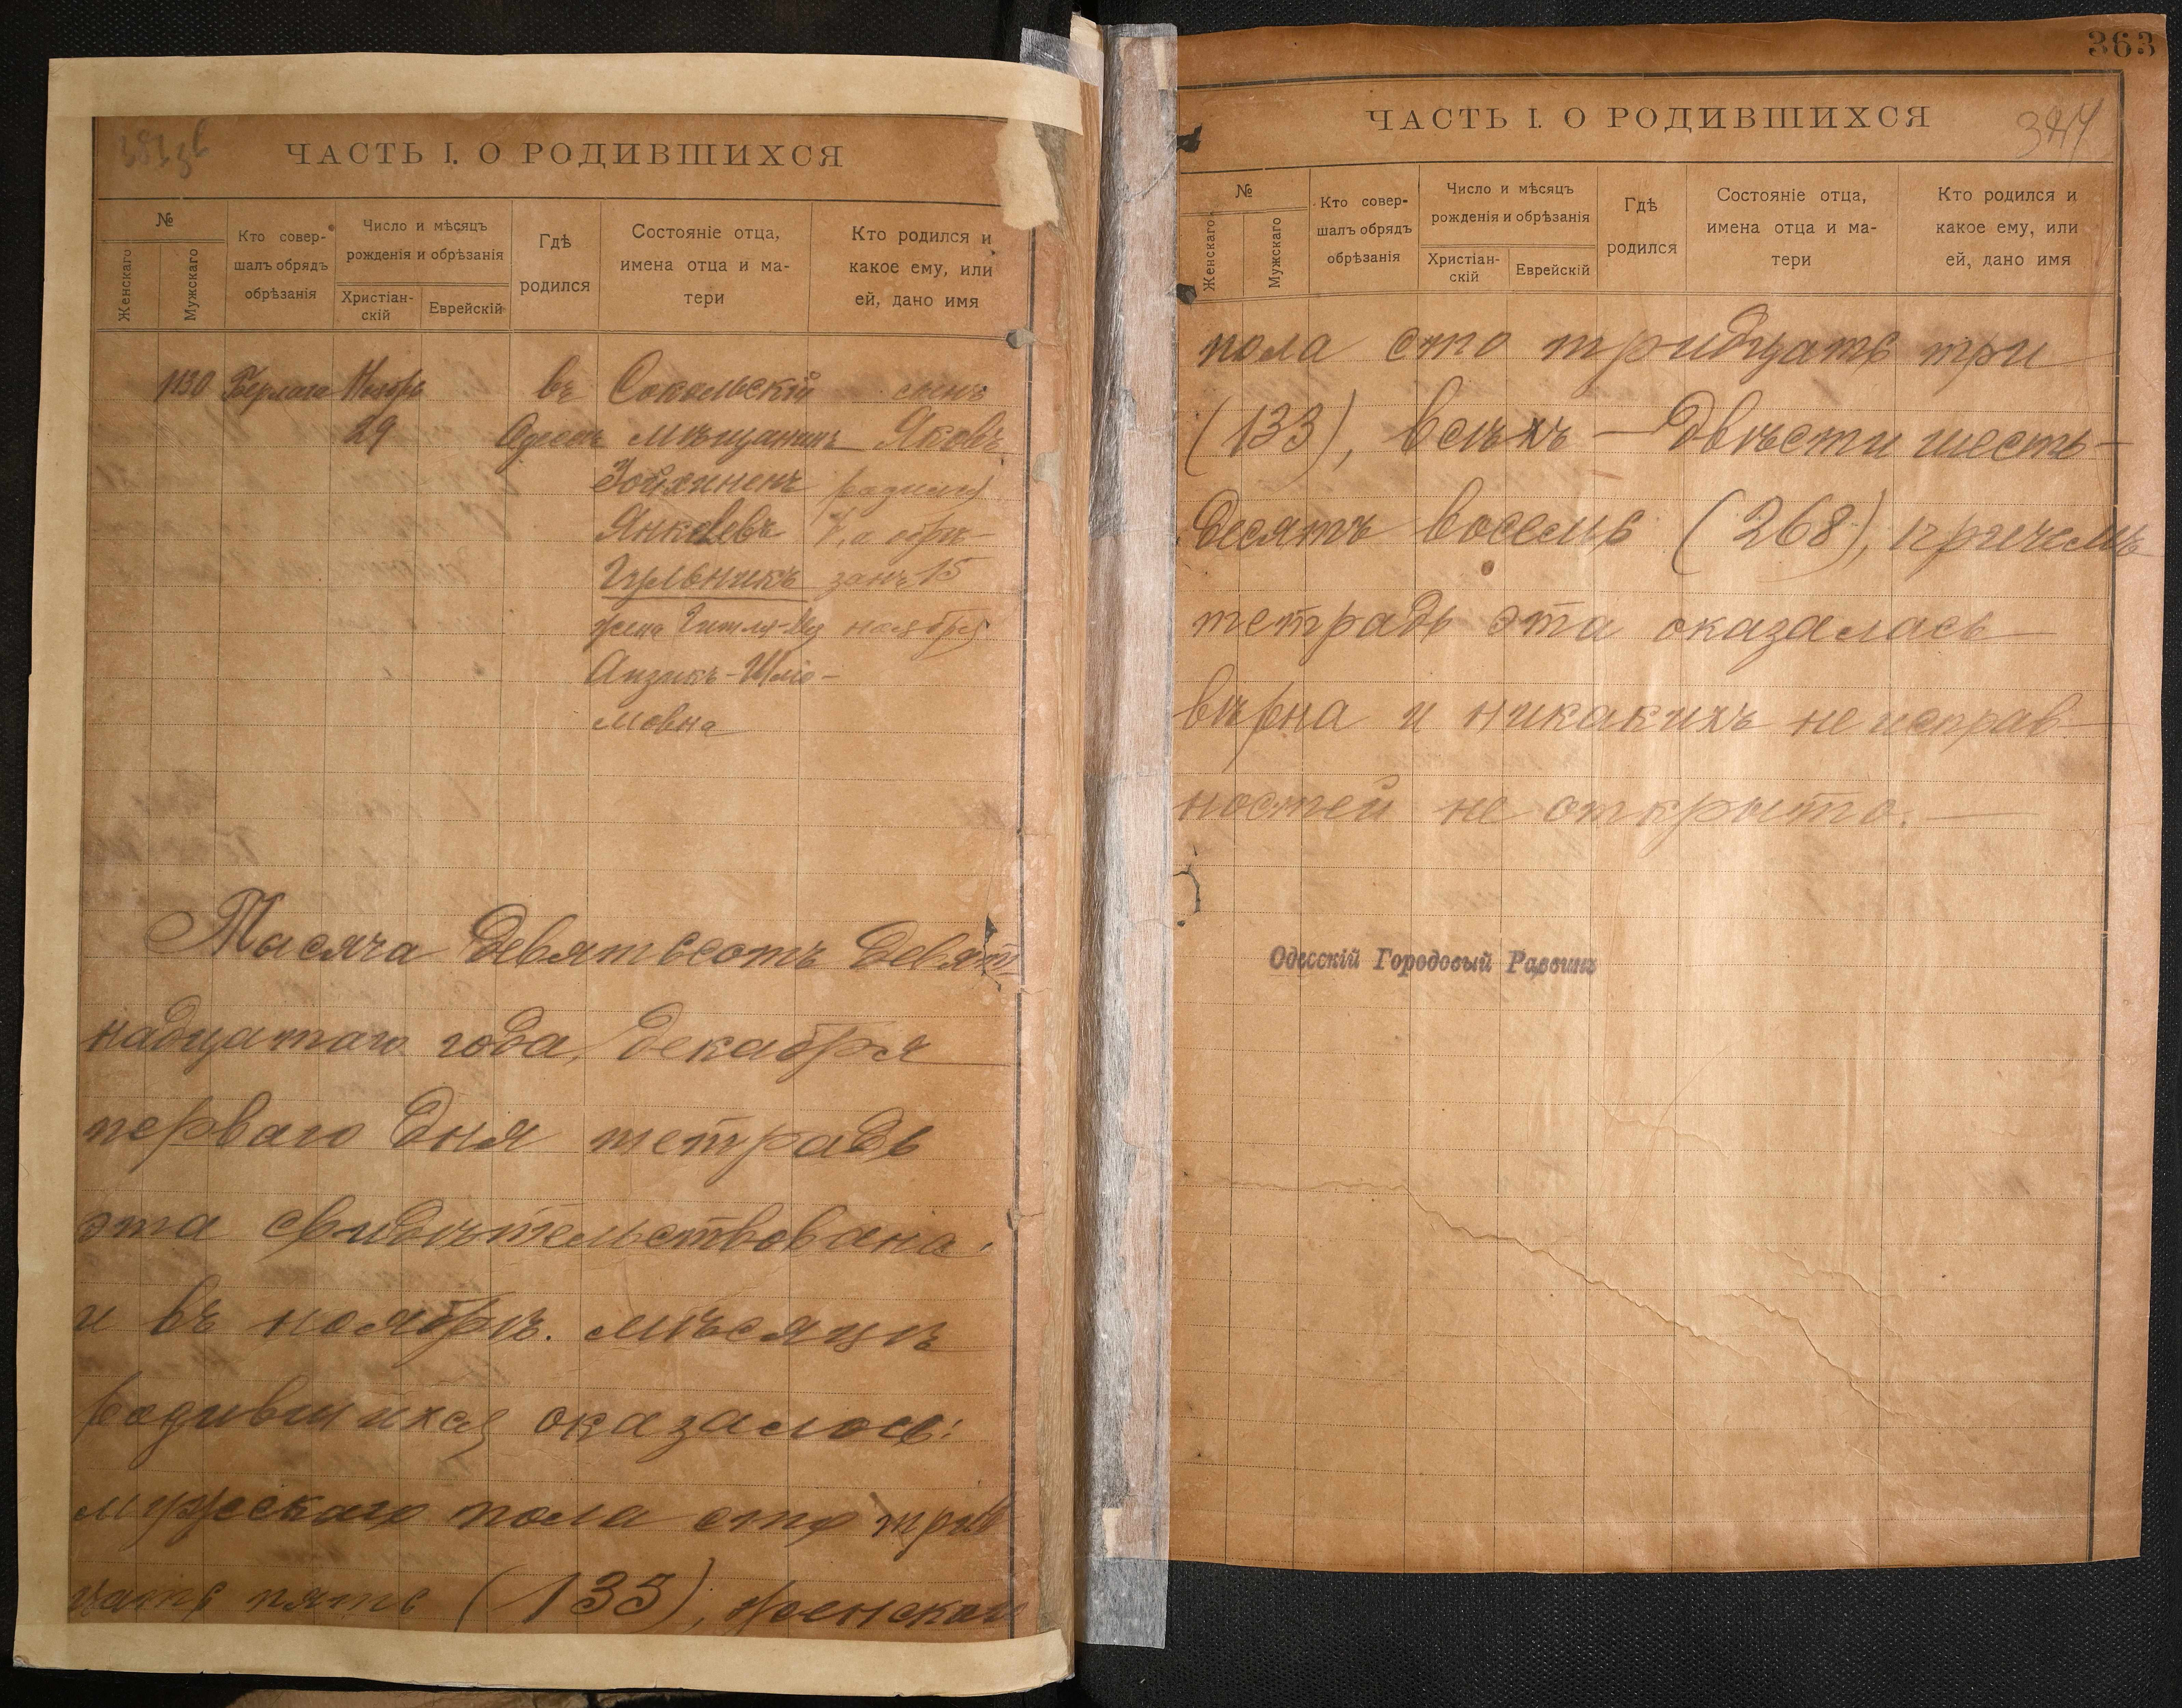 ЧАСТЬ I. О РОДИВШИХСЯ
№
Женскаго
Мужскаго
Кто совер-
шалъ обрядъ
обрѣзанія
Число и мѣсяцъ
рожденія и обрѣзанія
Христіан-
скій
Еврейскій
Гдѣ
родился
Состояніе отца,
имена отца и ма-
тери
Кто родился и
какое ему, или
ей, дано имя
1130 Берлага Ноябрь въ Сокольскій сынъ
29 Одессѣ мѣщанинъ Яковъ
родился
Янкелевъ 7, а обрѣ-
занъ 15
жена ноября
Аизикъ-Шліо-
мовна
Тысяча девятьсотъ девят-
надцатаго года, декабря
перваго дня тетрадь
эта свидѣтельствована
и въ ноябрѣ мѣсяцѣ
родившихся оказалось:
мужескаго пола сто трид
цать пять (135), женскаго
363
ЧАСТЬ I. О РОДИВШИХСЯ
№
Женскаго
Мужскаго
Кто совер-
шалъ обрядъ
обрѣзанія
Число и мѣсяцъ
рожденія и обрѣзанія
Христіан-
скій
Еврейскій
Гдѣ
родился
Состояніе отца,
имена отца и ма-
тери
Кто родился и
какое ему, или
ей, дано имя
пола сто тридцать три
(133), всѣхъ — двѣсти шесть-
десятъ восемь (268), причемъ
тетрадь эта оказалась
вѣрна и никакихъ неисправ-
ностей не открыто. —
Одесскій Городовый Раввинъ